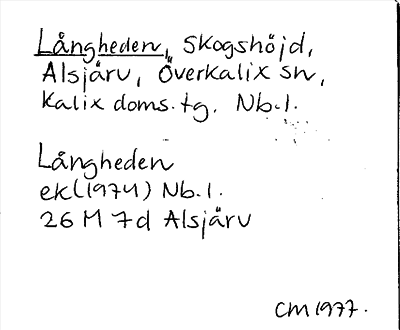 Långheden, skogshöjd,
Alsjärv, Överkalix sn,
Kalix doms. tg. Nb. l.
Långheden
ek (1974) Nb. l.
26 M 7d Alsjärv
CM 1977.